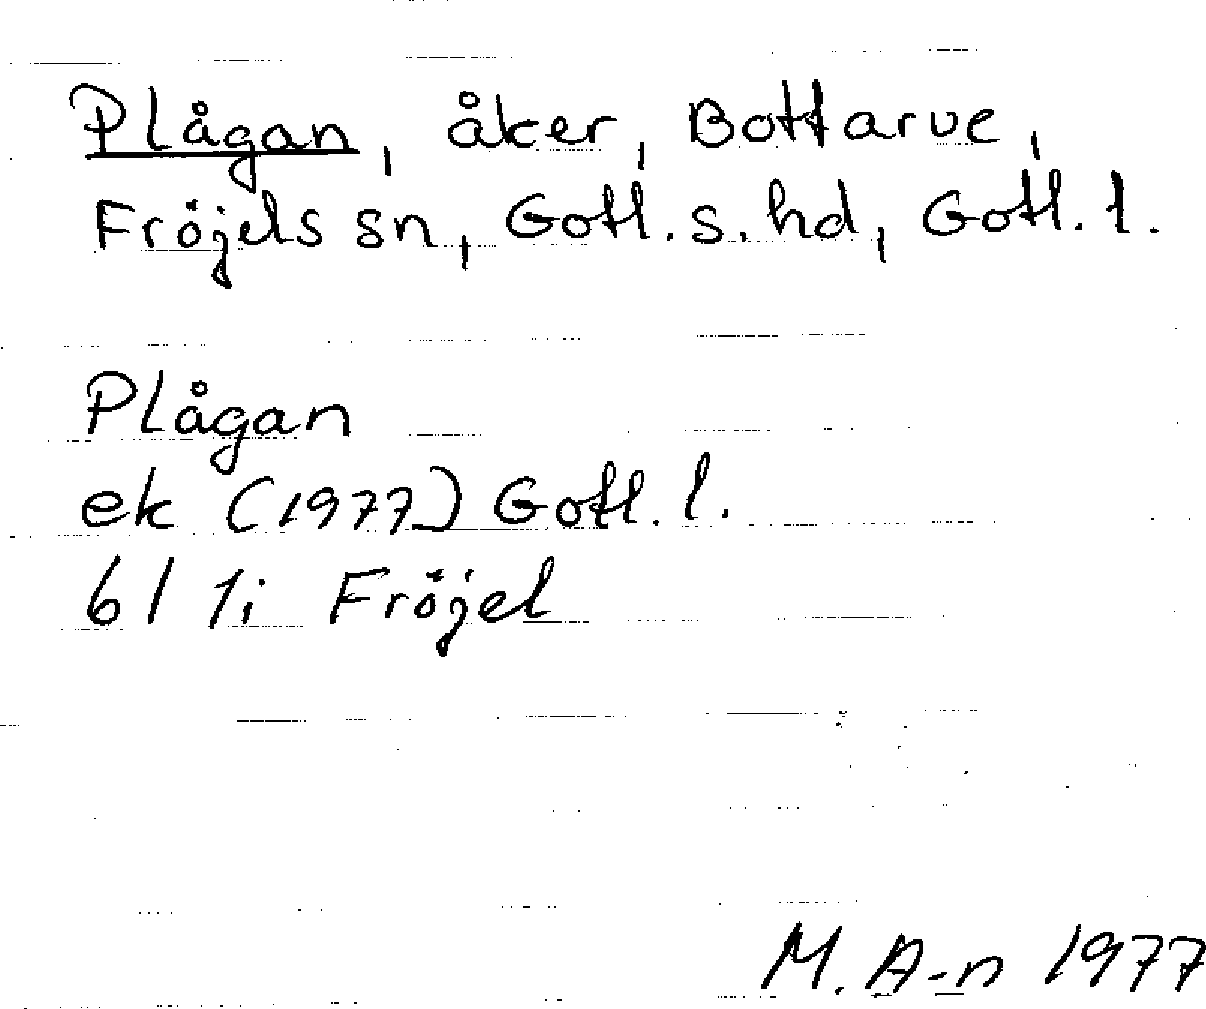 Plågan, åker, Bottarve,
Fröjels sn, Gotl. s. hd, Gotl. l.
Plågan
ek (1977) Gotl. l.
6I 1i Fröjel
M. A-n 1977